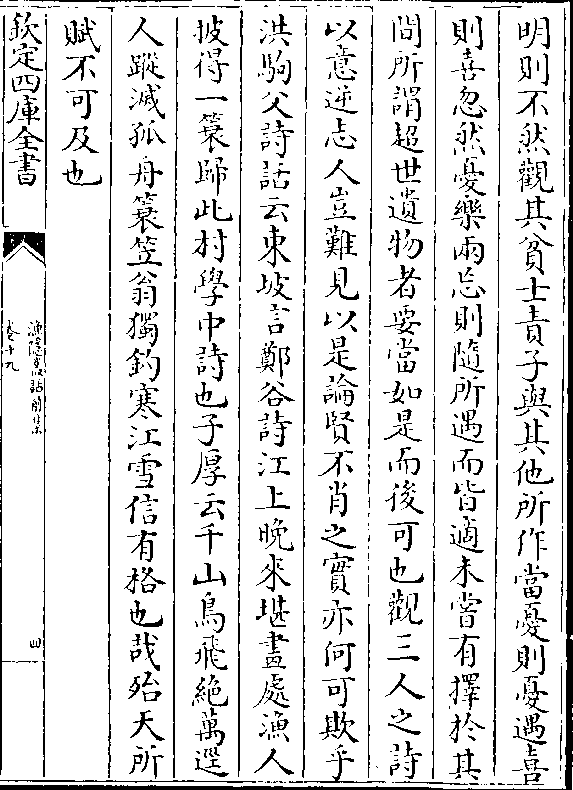 明則不然觀其貧士責子與其他所作當憂則憂遇喜
則喜忽然憂樂兩忘則隨所遇而皆適未嘗有擇於其
間所謂超世遺物者要當如是而後可也觀三人之詩
以意逆志人豈難見以是論賢不肖之實亦何可欺乎
洪駒父詩話云東坡言鄭谷詩江上晚來堪畫處漁人
披得一簑歸此村學中詩也子厚云千山鳥飛絶萬逕
人蹤滅孤舟簑笠翁獨釣寒江雪信有格也哉殆天所
賦不可及也
欽定四庫全書
漁隱叢話前集
卷十九
四